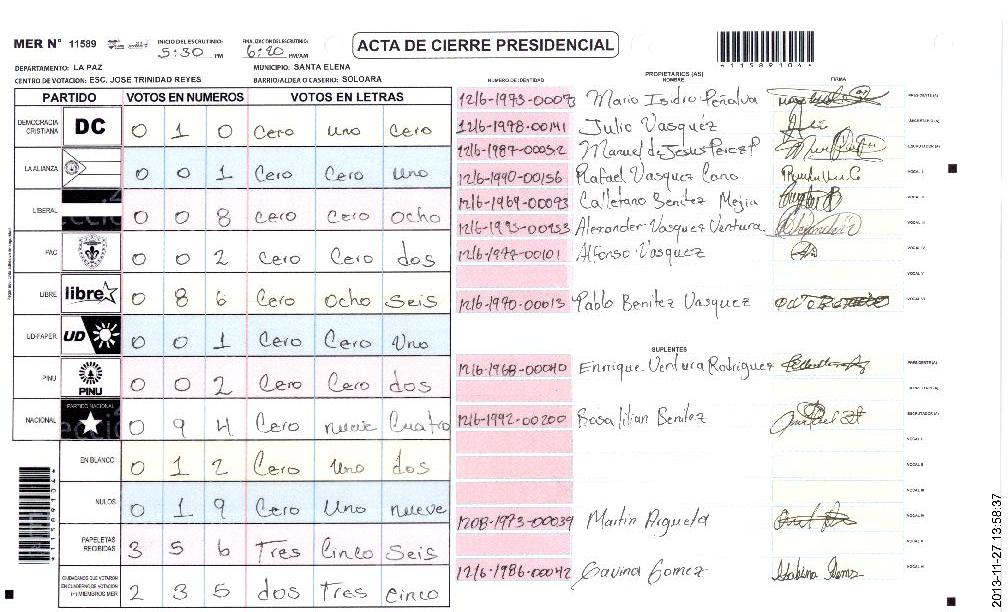 MER N° 11589 INICIO DEL ESCRUTINIO: 5:30 PM FINALIZACION DEL ESCRUTINIO: 6:20 PM/AM ACTA DE CIERRE PRESIDENCIAL
DEPARTAMENTO: LA PAZ MUNICIPIO: SANTA ELENA
CENTRO DE VOTACION: ESC. JOSE TRINIDAD REYES BARRIO/ALDEA O CASERIO: SOLOARA
PARTIDO VOTOS EN NUMEROS VOTOS EN LETRAS
DEMOCRACIA CRISTIANA DC 0 1 0 Cero uno Cero
LA ALIANZA 0 0 1 Cero Cero uno
LIBERAL 0 0 8 Cero Cero ocho
PAC 0 0 2 Cero Cero dos
LIBRE libre 0 8 6 Cero ocho Seis
UD-FAPER UD 0 0 1 Cero Cero Uno
PINU PINU 0 0 2 Cero Cero dos
NACIONAL PARTIDO NACIONAL 0 9 4 Cero nueve Cuatro
EN BLANCO 0 1 2 Cero Uno dos
NULOS 0 1 9 Cero Uno nueve
PAPELETAS RECIBIDAS 3 5 6 Tres Cinco Seis
CIUDADANOS QUE VOTARON EN CUADERNO DE VOTACION (+) MIEMBROS MER 2 3 5 dos Tres Cinco
NUMERO DE IDENTIDAD PROPIETARIOS (AS) NOMBRE FIRMA
1216-1973-00073 Mario Isidro Peñalva PRESIDENTE (A)
1216-1978-00141 Julio Vasquez SECRETARIO (A)
1216-1987-00052 Manuel de Jesus Perez P ESCRUTADOR (A)
1216-1990-00156 Rafael Vasquez Cano VOCAL I
1216-1969-00093 Calletano Benitez Mejia VOCAL II
1216-1993-00153 Alexander Vasquez Ventura VOCAL III
1216-1977-00101 Alfonso Vasquez VOCAL IV
VOCAL V
1216-1970-00013 Pablo Benitez Vasquez VOCAL VI
SUPLENTES
1216-1968-00040 Enrrique Ventura Rodriguez PRESIDENTE (A)
SECRETARIO (A)
1216-1992-00200 Rosa lilian Benitez ESCRUTADOR (A)
VOCAL I
VOCAL II
VOCAL III
1208-1973-00039 Martin Argueta VOCAL IV
VOCAL V
1216-1986-00042 Gavina Gomez VOCAL VI
11589104
2013-11-27 13:58:37